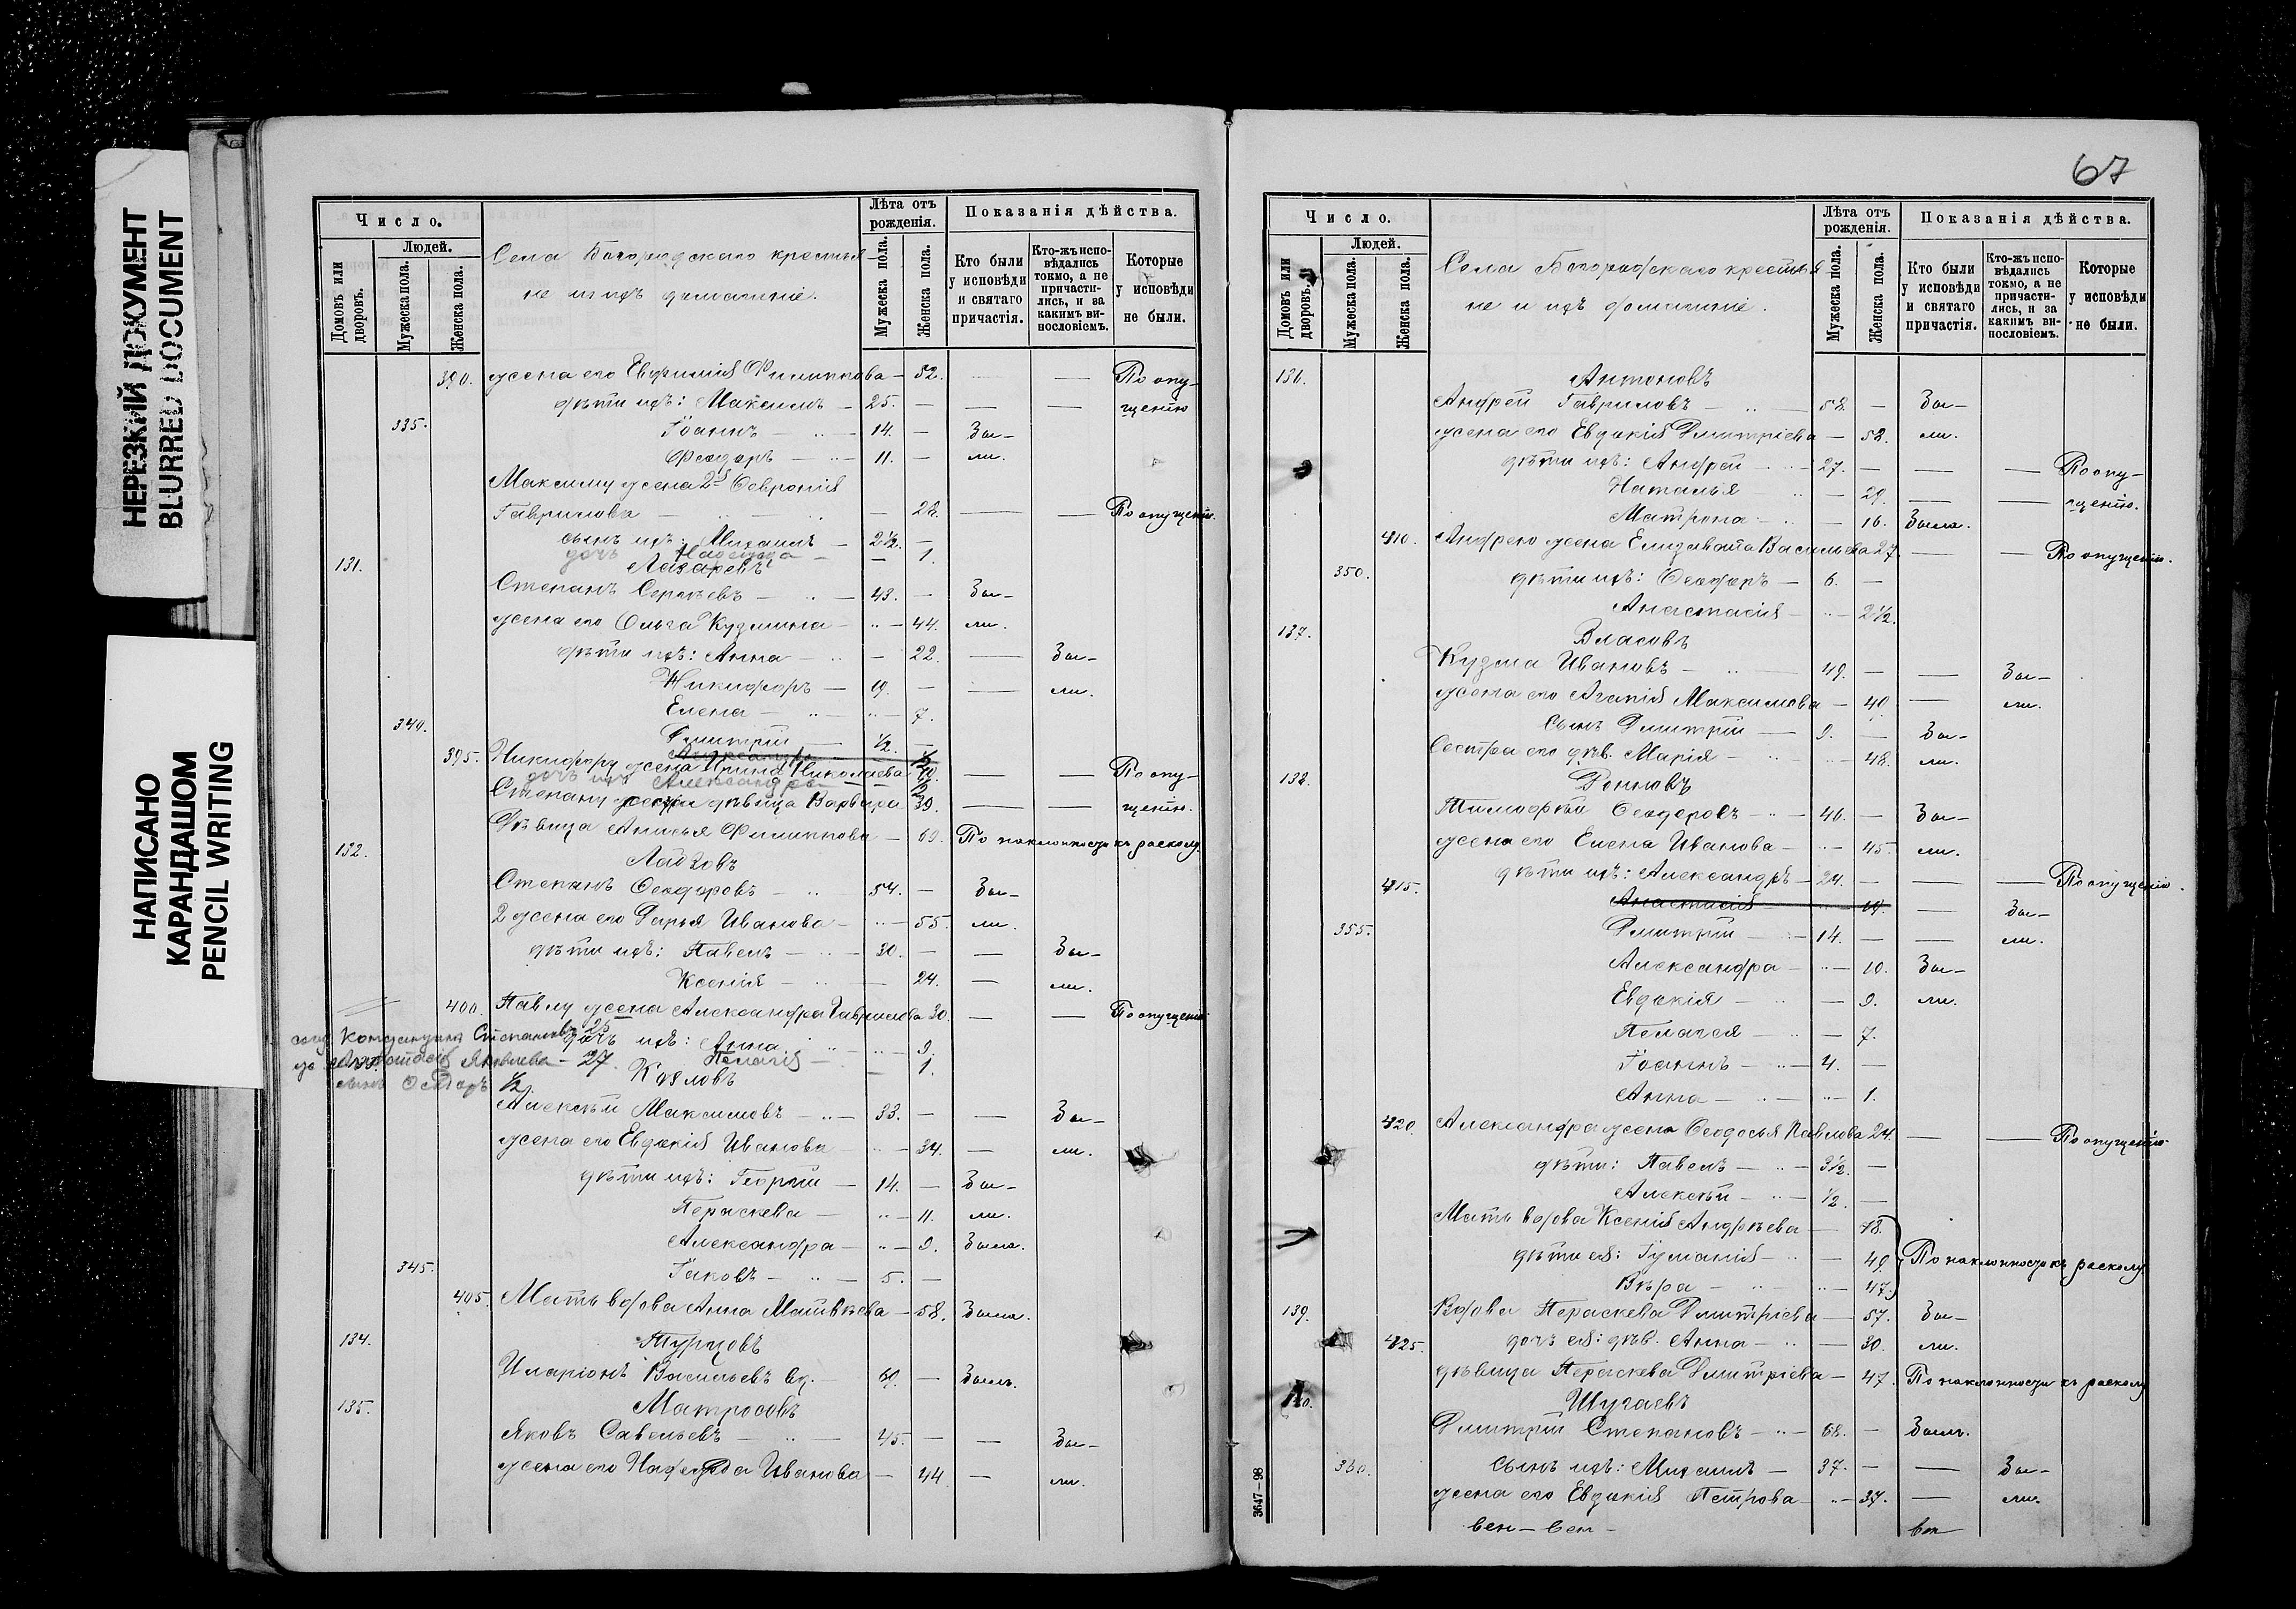 НЕРЕЗКИЙ ДОКУМЕНТ
BLURRED DOCUMENT
НАПИСАНО
КАРАНДАШОМ
PENCIL WRITING
Число.
Лѣта отъ рожденія.
Показанія дѣйства.
Домовъ или дворовъ.
Людей.
Мужеска пола.
Женска пола.
Села Богородскаго крестья-
не и ихъ домашніе.
Мужеска пола.
Женска пола.
Кто были у исповѣди и святаго причастія.
Кто-жъ испо-вѣдались токмо, а не причасти-лись, и за какимъ ви-нословіемъ.
Которые у исповѣди не были.
390. жена его Евфимія Филиппова — 52. — — По опу-
дѣти ихъ: Максимъ — 25. — — — щенію
335. Іоаннъ — 14. — Бы-
Феодоръ — 11. — ли.
Максиму жена 2я Февронія
Гаврилова — 28. — — По опущенію.
сынъ ихъ: Михаилъ — 2½. —
дочь Надежда — — 1.
131. Лазаревъ
Степанъ Сергѣевъ — 43. — Бы-
жена его Ольга Кузмина — 44. ли.
дѣти ихъ: Анна — — 22. — Бы-
Никифоръ — 19. — — ли.
Елена — 7.
340. Димитрій — ½. —
Александра
395. Никифору жена Ирина Николаева — — По опу-
дочь ихъ Александра
Степану сестра дѣвица Варвара 39. — — щенію.
Дѣвица Анисья Филиппова — 69. По наклонности къ расколу.
132. Лабзовъ
Степанъ Феодоровъ — 54. — Бы-
2 жена его Дарья Иванова — 55. ли.
дѣти ихъ: Павелъ — 30. — — Бы-
Ксенія — 24. — ли.
400. Павлу жена Александра Гаврилова 30. — — По опущенію
Степановъ 25
дочь ихъ: Анна — 9.
Яковлева — 27.
Пелагія — 1.
сынъ Феодоръ ½
Козловъ
Алексѣй Максимовъ — 33. — — Бы-
жена его Евдокія Иванова — 34. — ли.
дѣти ихъ: Георгій — 14. — Бы-
Параскева — 11. ли.
Александра — 9. Была.
345. Іаковъ — 5. —
405. Мать вдова Анна Матвѣева — 58. Была.
134. Турцовъ
Иларіонъ Васильевъ вд. — 69. — Былъ.
135. Матросовъ
Яковъ Савельевъ — 45. — — Бы-
жена его Надежда Иванова — 44 — ли.
67
Число.
Лѣта отъ рожденія.
Показанія дѣйства.
Домовъ или дворовъ.
Людей.
Мужеска пола.
Женска пола.
Села Богородскаго крестья
не и ихъ домашніе.
Мужеска пола.
Женска пола.
Кто были у исповѣди и святаго причастія.
Кто-жъ испо-вѣдались токмо, а не причасти-лись, и за какимъ ви-нословіемъ.
Которые у исповѣди не были.
136. Антоновъ
Андрей Гавриловъ — 58. — Бы-
жена его Евдокія Дмитріева — 58. ли.
дѣти ихъ: Андрей — 27. — — — По опу-
Наталья — — 29. — — щенію.
Матрона — — 16. Была.
410. Андрею жена Елизавета Васильева 27. — — По опущенію.
350. дѣти ихъ: Феодоръ — 6. —
Анастасія — 2½.
137. Власовъ
Кузма Ивановъ — 49. — — Бы-
жена его Агапія Максимова — 49. — ли.
сынъ Дмитрій — 9. — Бы-
Сестра его дѣв. Марія — 48. ли.
138. Донновъ
Тимофѣй Феодоровъ — 46. — Бы-
жена его Елена Иванова — 45. ли.
дѣти ихъ: Александръ — 24. — — — По опущенію.
415. Анастасія — 19. — Бы-
355. Дмитрій — 14. — — ли.
Александра — 10. Бы-
Евдокія — 9. ли.
Пелагея — 7.
Іоаннъ — 4. —
Анна — 1.
420. Александра жена Феодосья Павлова 24. — — По опущенію
дѣти: Павелъ — 3½. —
Алексѣй — ½. —
Мать вдова Ксенія Андреева — 78.
дѣти ея: Іуліанія — 49. По наклонности къ расколу.
Вѣра — 47.
139. Вдова Параскева Дмитріева — 57. Бы-
425. дочь ея: дѣв. Анна — 30. ли.
дѣвица Параскева Дмитріева — 47. По наклонности къ расколу
Шугаевъ
Дмитрій Степановъ — 68. — Былъ.
360. сынъ ихъ: Михаилъ — 37. — — Бы-
жена его Евдокія Петрова — 37. — ли.
3647—98